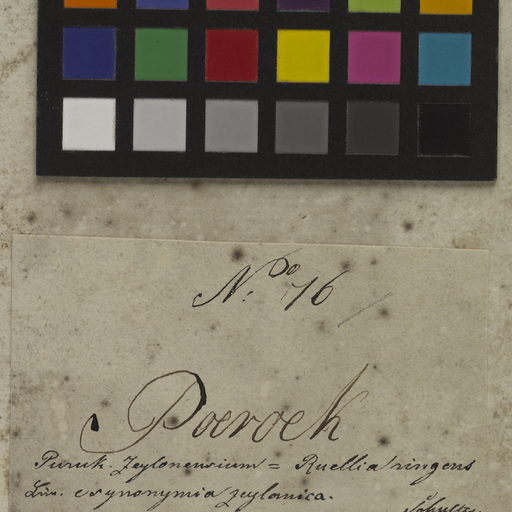 N.º 76
Poeroek
Puruk. Zeylonensium = Ruellia ringens
Lin. e synonymia zeylanica.
Schultz.